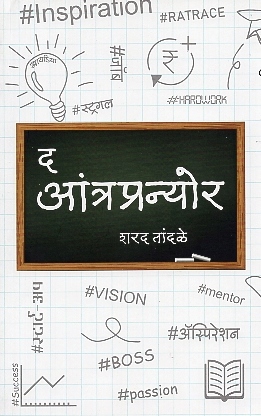 #Inspiration
#RATRACE
#जॉब
₹
#स्ट्रगल
#HARDWORK
द
आंत्रप्रन्योर
शरद तांदळे
#स्टार्ट-अप
#VISION
#mentor
#ॲस्पिरेशन
#BOSS
#Success
#passion